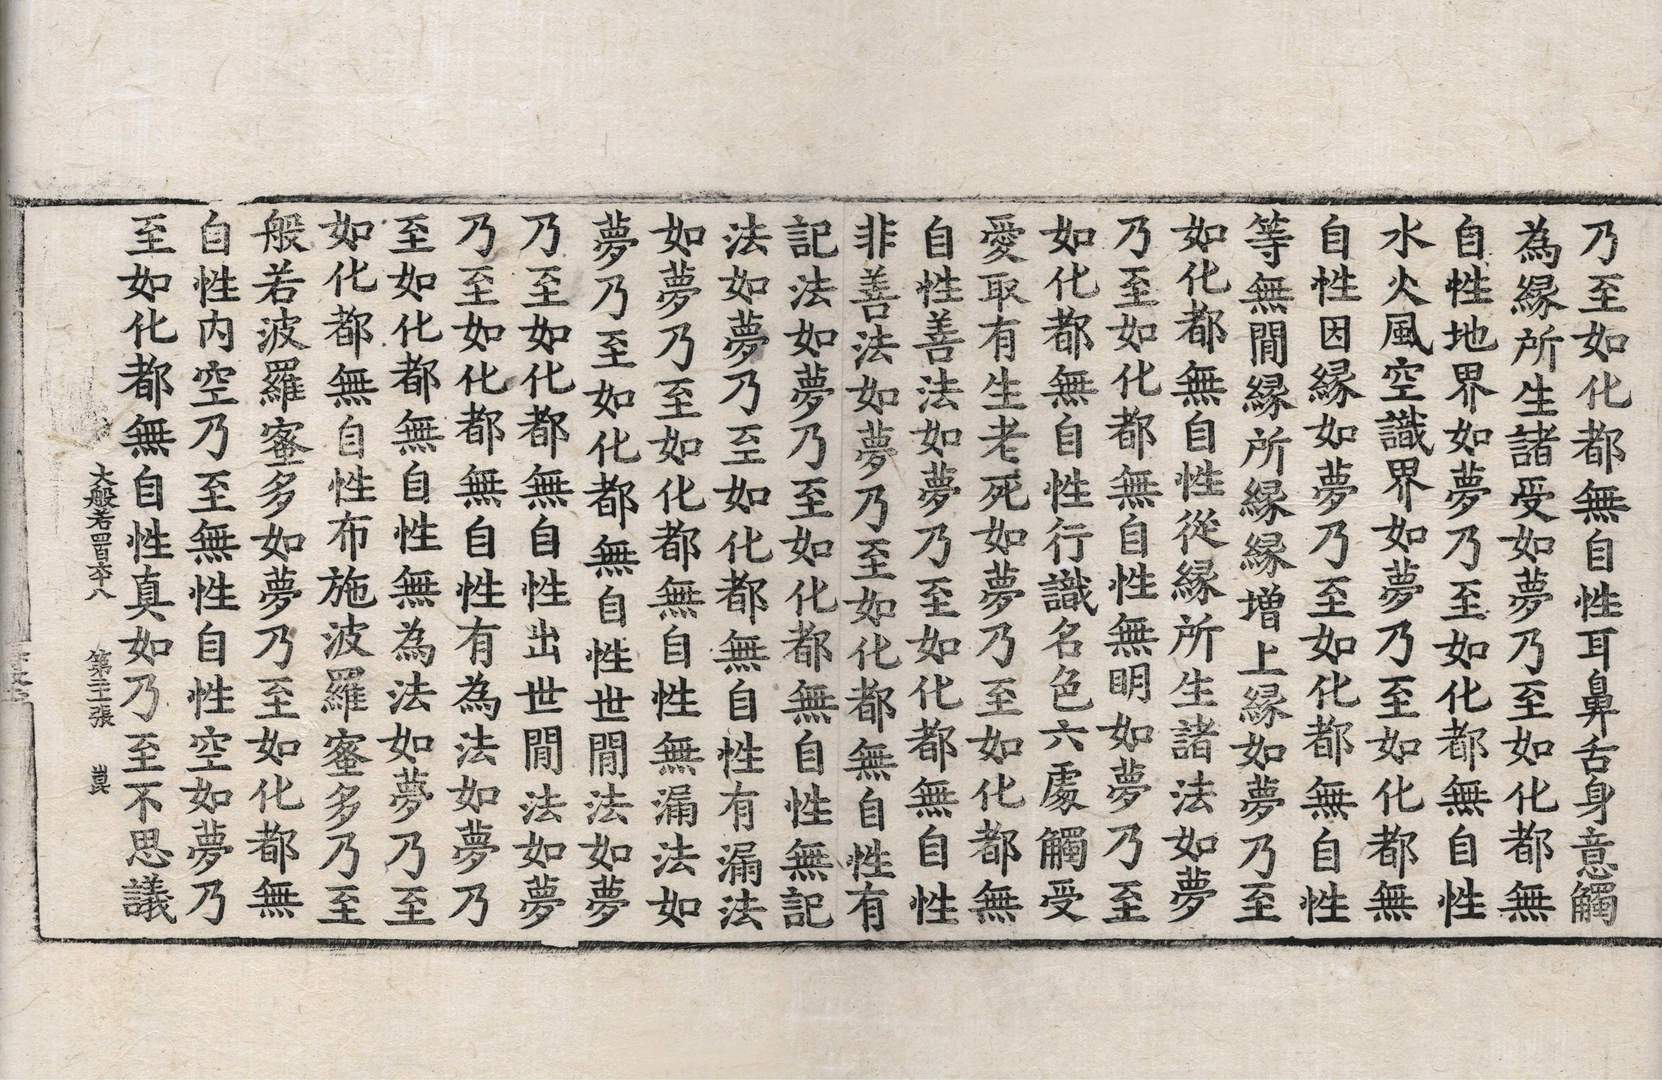 乃至如化都無自性耳鼻舌身意觸
為緣所生諸受如夢乃至如化都無
自性地界如夢乃至如化都無自性
水火風空識界如夢乃至如化都無
自性因緣如夢乃至如化都無自性
等無間緣所緣緣增上緣如夢乃至
如化都無自性從緣所生諸法如夢
乃至如化都無自性無明如夢乃至
如化都無自性行識名色六處觸受
愛取有生老死如夢乃至如化都無
自性善法如夢乃至如化都無自性
非善法如夢乃至如化都無自性有
記法如夢乃至如化都無自性無記
法如夢乃至如化都無自性有漏法
如夢乃至如化都無自性無漏法如
夢乃至如化都無自性世間法如夢
乃至如化都無自性出世間法如夢
乃至如化都無自性有為法如夢乃
至如化都無自性無為法如夢乃至
如化都無自性布施波羅蜜多乃至
般若波羅蜜多如夢乃至如化都無
自性內空乃至無性自性空如夢乃
至如化都無自性真如乃至不思議
大般若四百六十八 第二十二張